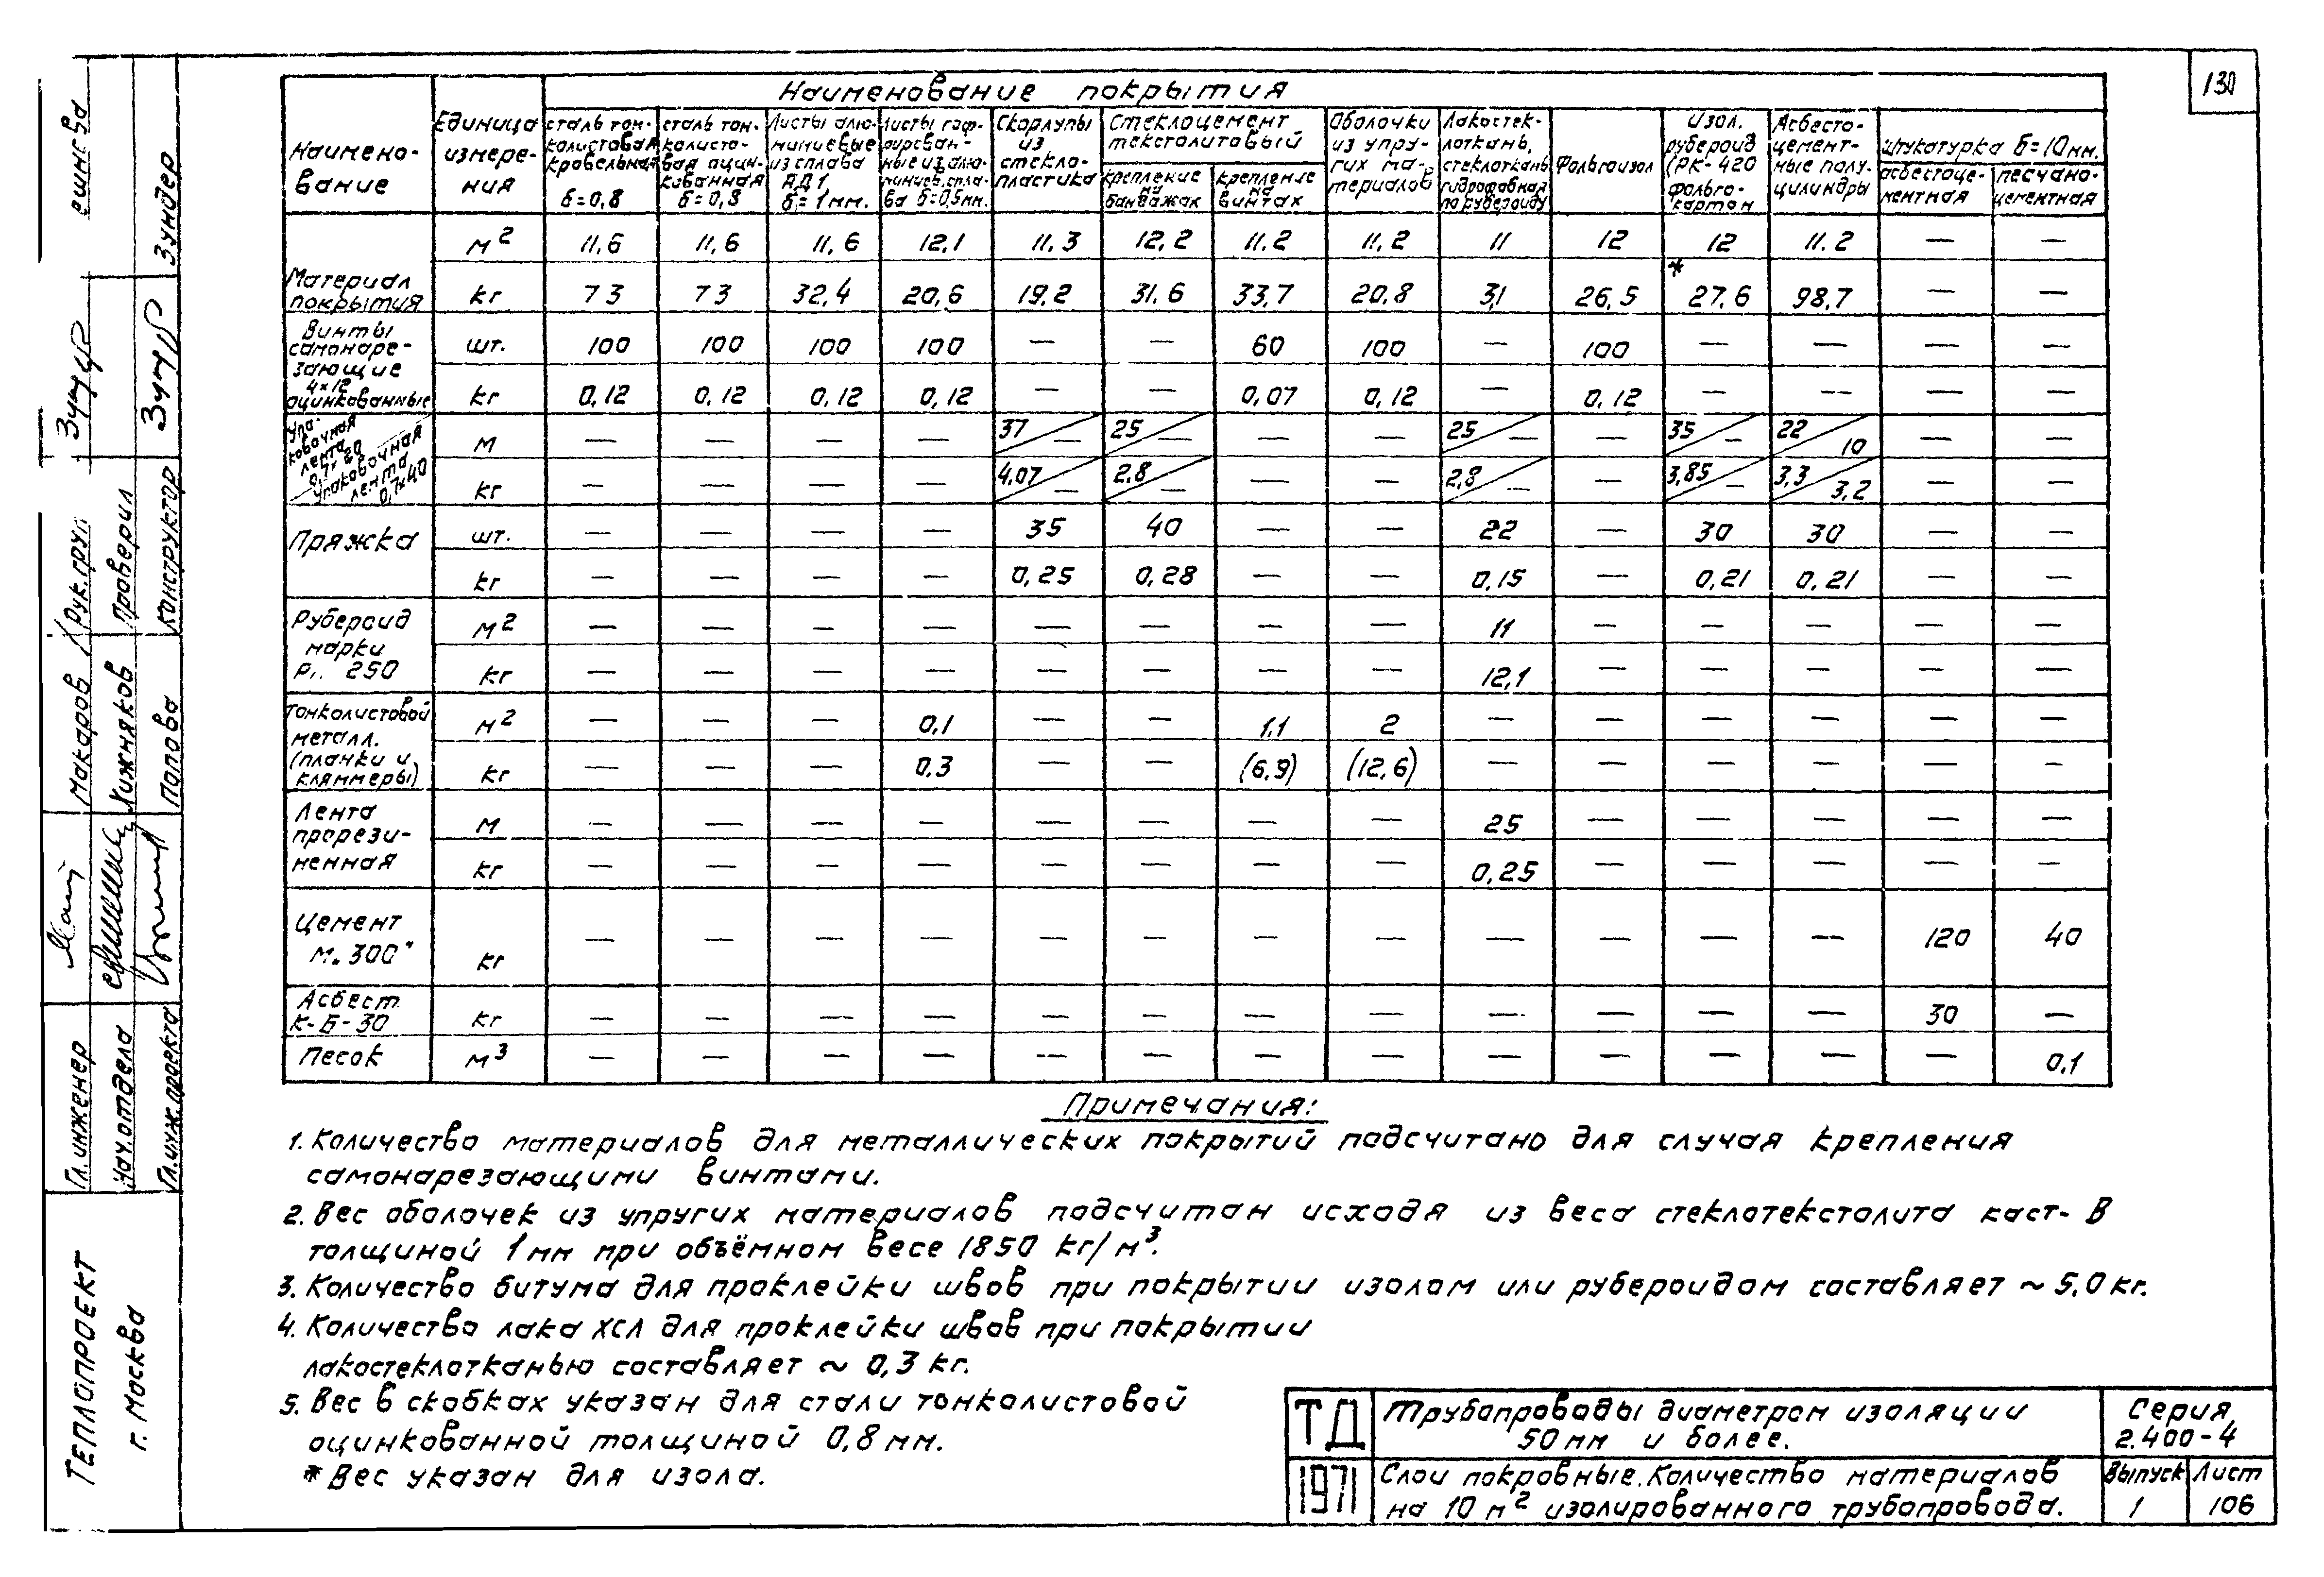 130
Наименование покрытия
Наимено-
вание
Единица
измере-
ния
сталь тон-
колистовая
кровельная
б=0,8
сталь тон-
колисто-
вая оцин-
кованная
б=0,8
Листы алю-
миниевые
из сплава
АД1
б=1мм.
Листы гоф-
рирован-
ные из алю-
миниев. спла-
ва б=0,5мм.
Скорлупы
из
стекло-
пластика
Стеклоцемент
текстолитовый
крепление
на
бандажах
крепление
на
винтах
Оболочки
из упру-
гих ма-
териалов
Лакостек-
лоткань,
стеклоткань
гидрофобная
по рубероиду
Фольгоизол
Изол,
рубероид
(РК-420
фольго-
картон
Асбесто-
цемент-
ные полу-
цилиндры
Штукатурка б=10мм.
асбестоце-
ментная
песчано-
цементная
Материал
покрытия
м2 11,6 11,6 11,6 12,1 11,3 12,2 11.2 11,2 11 12 12 11.2 — —
кг 73 73 32,4 20,6 19,2 31.6 33,7 20,8 3,1 26,5 *27.6 98,7 — —
Винты
самонаре-
зающие
4×12
оцинкованные
шт. 100 100 100 100 — — 60 100 — 100 — — — —
кг 0,12 0,12 0,12 0,12 — — 0,07 0,12 — 0,12 — — — —
Упа-
ковочная
лента
0,7×20
упаковочная
лента
0,7×40
м — — — — 37/— 25/— — — 25/— — 35/— 22/10 — —
кг — — — — 4,07/— 2,8/— — — 2,8/— — 3,85/— 3,3/3,2 — —
Пряжка
шт. — — — — 35 40 — — 22 — 30 30 — —
кг — — — — 0,25 0,28 — — 0,15 — 0,21 0,21 — —
Рубероид
марки
250
м2 — — — — — — — — 11 — — — — —
кг — — — — — — — — 12,1 — — — — —
Тонколистовой
металл.
(планки и
кляммеры)
м2 — — — 0,1 — — 1,1 2 — — — — — —
кг — — — 0,3 — — (6,9) (12,6) — — — — — —
Лента
прорези-
ненная
м — — — — — — — — 25 — — — — —
кг — — — — — — — — 0,25 — — — — —
Цемент
м.300"
кг — — — — — — — — — — — — 120 40
Асбест
К-Б-30
кг — — — — — — — — — — — — 30 —
Песок м3 — — — — — — — — — — — — — 0,1
Примечания:
1. Количество материалов для металлических покрытий подсчитано для случая крепления
самонарезающими винтами.
2. Вес оболочек из упругих материалов подсчитан исходя из веса стеклотекстолита каст-В
толщиной 1мм при объёмном весе 1850 кг/м3.
3. Количество битума для проклейки швов при покрытии изолом или рубероидом составляет ~ 5,0кг.
4. Количество лака ХСЛ для проклейки швов при покрытии
лакостеклотканью составляет ~ 0,3 кг.
5. Вес в скобках указан для стали тонколистовой
оцинкованной толщиной 0,8мм.
* Вес указан для изола.
ТД
1971
Трубопроводы диаметром изоляции
50мм и более.
Слои покровные. Количество материалов
на 10 м2 изолированного трубопровода.
Серия
2.400-4
Выпуск
1
Лист
106
ТЕПЛОПРОЕКТ
г. Москва
Гл.инженер
Нач.отдела
Гл.инж.проекта
Макаров
Хижняков
Попова
Рук.груп.
Проверил
Конструктор
Зундер